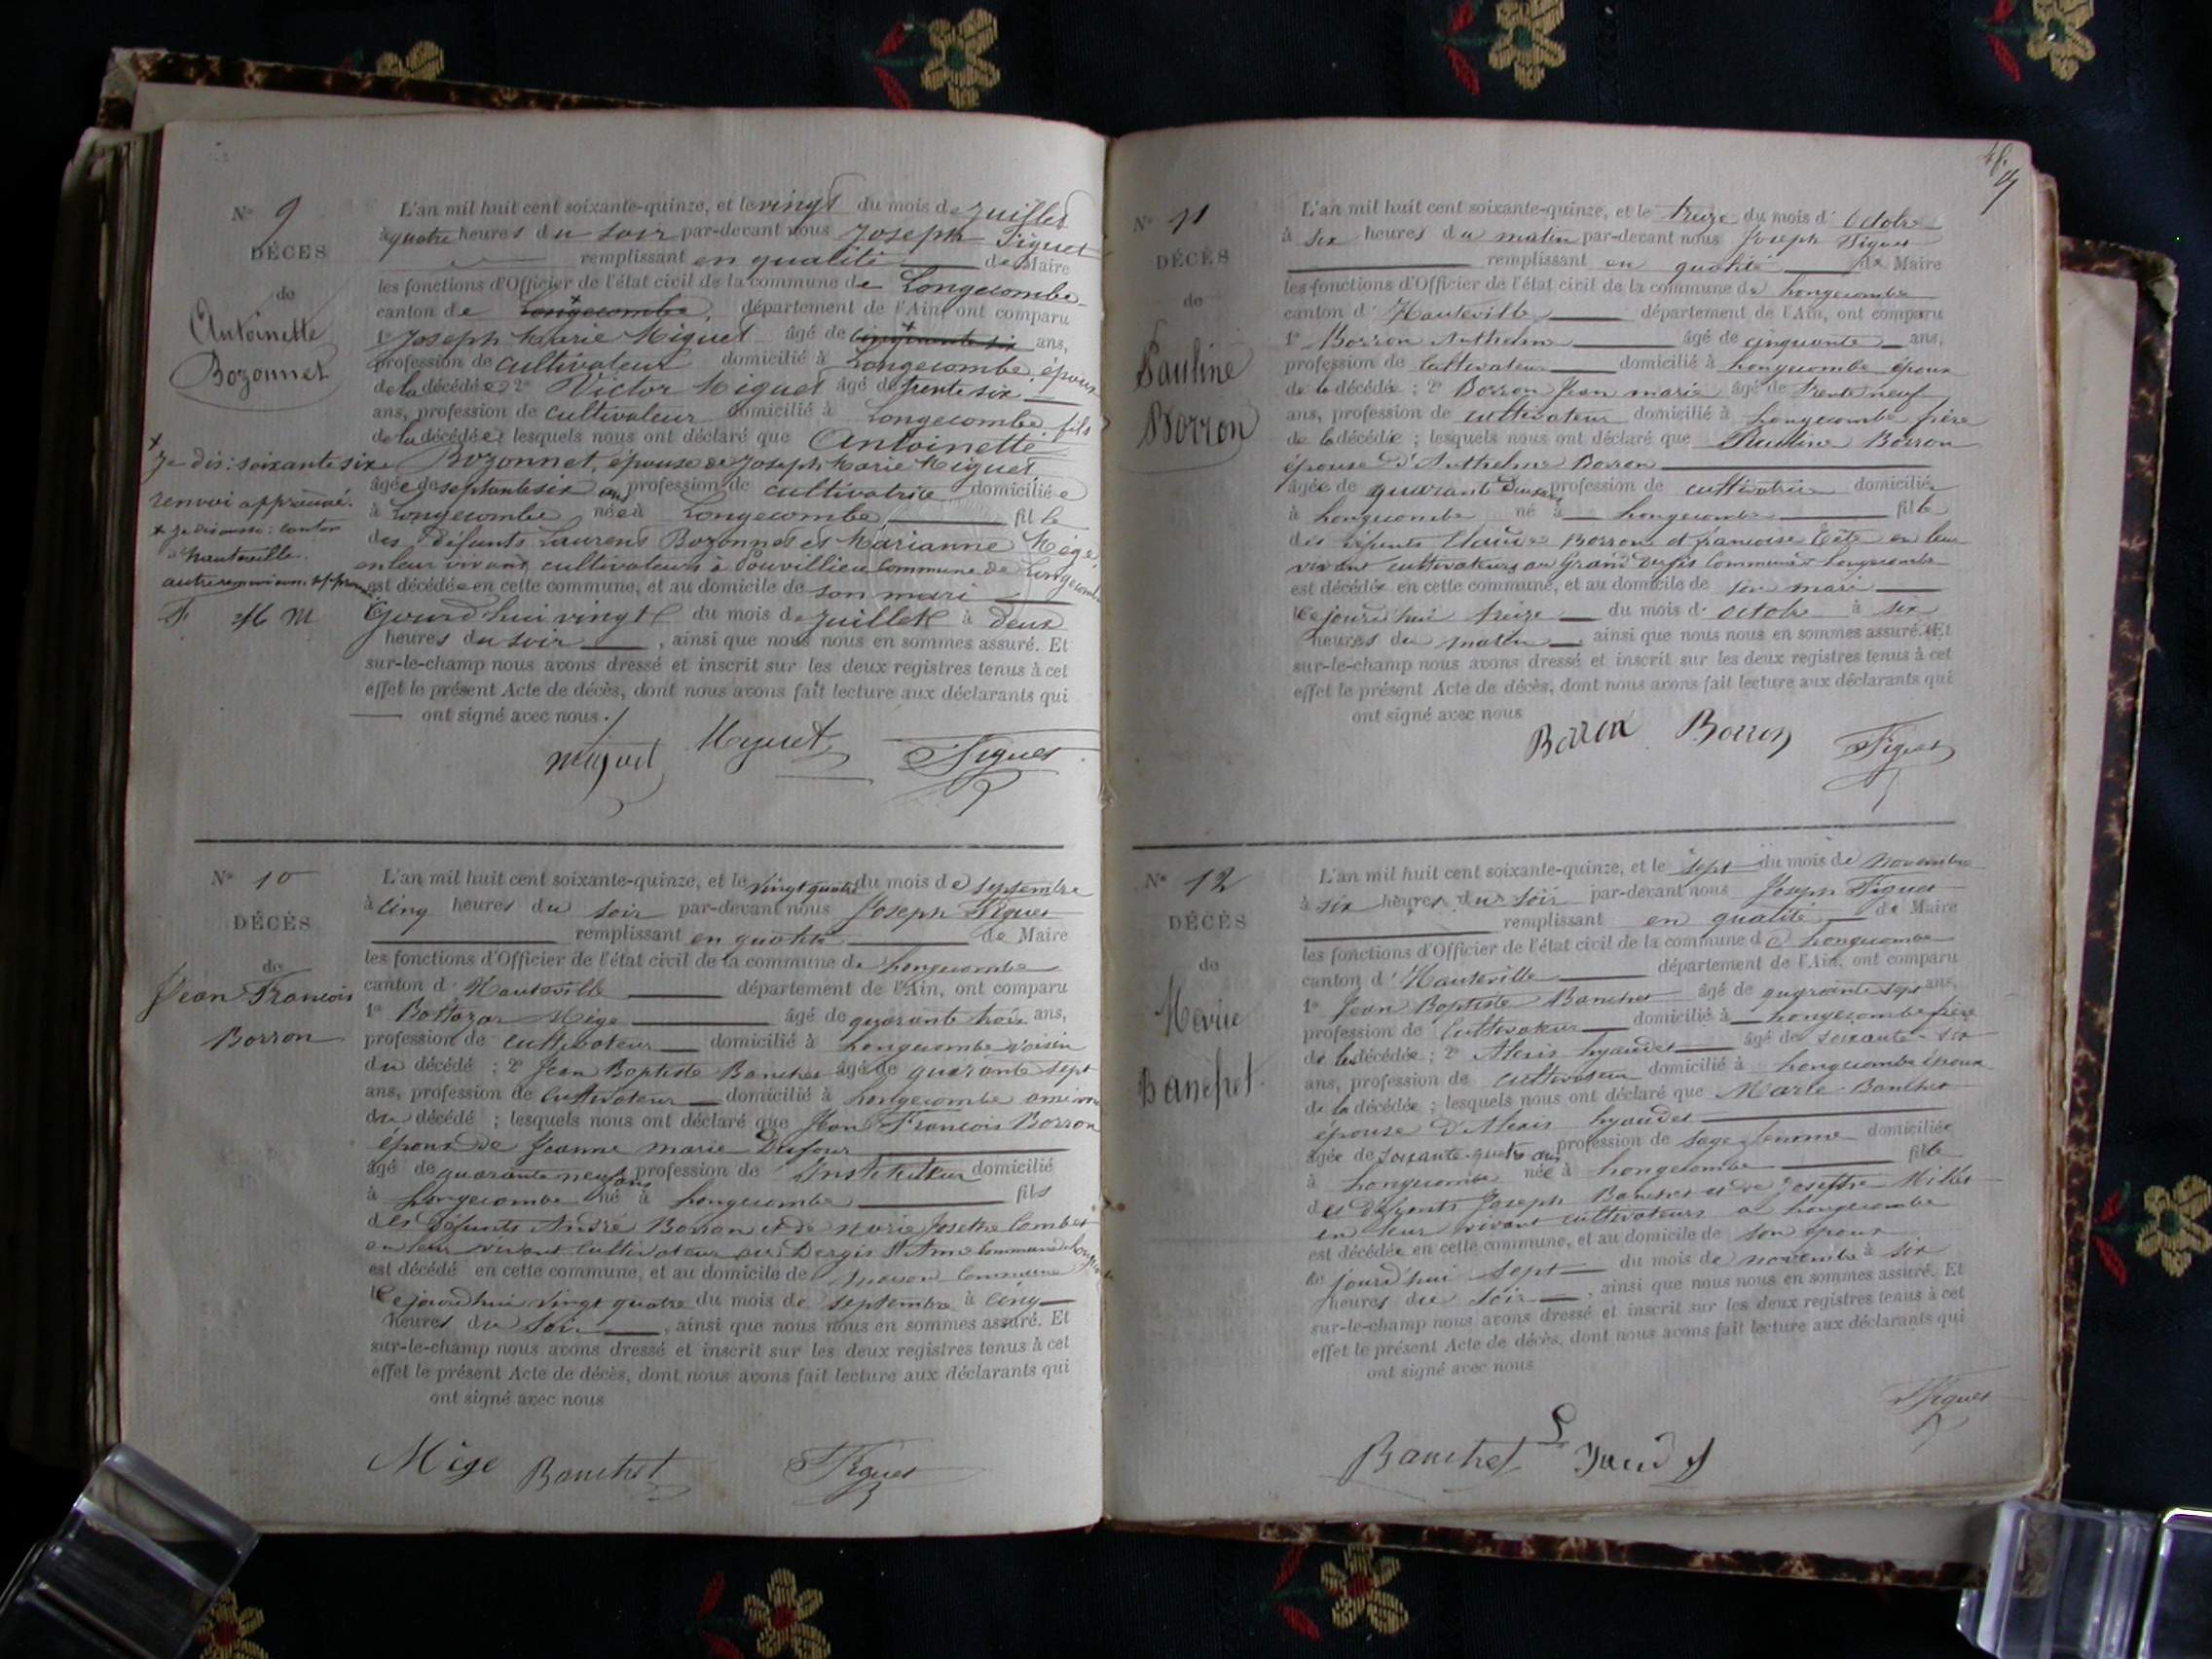 N° 9
DÉCÈS
de
Antoinette
Bozonnet
L'an mil huit cent soixante-quinze, et le vingt du mois de juillet
à quatre heures du soir par-devant nous Joseph Figuet
remplissant en qualité de Maire
les fonctions d'Officier de l'état civil de la commune de Longecombe
canton de Longecombe, département de l'Ain, ont comparu
1° Joseph Marie Miguet âgé de cinquante six ans,
profession de cultivateur domicilié à Longecombe, époux
de la décédée 2° Victor Miguet âgé de trente six
ans, profession de cultivateur domicilié à Longecombe fils
de la décédée; lesquels nous ont déclaré que Antoinette
Bozonnet, épouse de Joseph Marie Miguet
âgée de septante six ans profession de cultivatrice domiciliée
à Longecombe née à Longecombe, fille
des défunts Laurent Bozonnet et Marianne Mège,
en leur vivant cultivateurs à Pouvillieu commune de Longecombe
est décédée en cette commune, et au domicile de son mari
Cejourd'hui vingt du mois de juillet à deux
heures du soir, ainsi que nous nous en sommes assuré. Et
sur-le-champ nous avons dressé et inscrit sur les deux registres tenus à cet
effet le présent Acte de décès, dont nous avons fait lecture aux déclarants qui
ont signé avec nous ./
x
je dis: soixante six
renvoi approuvé.
x je dis aussi: canton
d'hauteville.
autre renvoi
F. M M
Miguet Miguet Figuet
N° 10
DÉCÈS
de
Jean François
Borron
L'an mil huit cent soixante-quinze, et le vingt quatre du mois de septembre
à cinq heures du soir par-devant nous Joseph Figuet
remplissant en qualité de Maire
les fonctions d'Officier de l'état civil de la commune de Longecombe
canton d' Hauteville département de l'Ain, ont comparu
1° Baltazar Mège âgé de quarante trois ans,
profession de cultivateur domicilié à Longecombe voisin
du décédé ; 2° Jean Baptiste Banchet âgé de quarante sept
ans, profession de cultivateur domicilié à Longecombe ami
du décédé ; lesquels nous ont déclaré que Jean François Borron
époux de Jeanne marie Dufour
âgé de quarante neuf ans profession de Instituteur domicilié
à Longecombe né à Longecombe fils
des défunts André Borron et de Marie Josette Combet
en leur vivant cultivateur au Dergis St Anne commune de
est décédé en cette commune, et au domicile de maison commune
Cejourd'hui vingt quatre du mois de septembre à cinq
heures du soir, ainsi que nous nous en sommes assuré. Et
sur-le-champ nous avons dressé et inscrit sur les deux registres tenus à cet
effet le présent Acte de décès, dont nous avons fait lecture aux déclarants qui
ont signé avec nous
Mège Banchet Figuet
N° 11
DÉCÈS
de
Pauline
Borron
L'an mil huit cent soixante-quinze, et le treize du mois d' Octobre
à six heures du matin par-devant nous Joseph Figuet
remplissant en qualité de Maire
les fonctions d'Officier de l'état civil de la commune de Longecombe
canton d' Hauteville département de l'Ain, ont comparu
1° Borron Anthelme âgé de cinquante ans,
profession de cultivateur domicilié à Longecombe époux
de la décédée ; 2° Borron Jean marie âgé de trente neuf
ans, profession de cultivateur domicilié à Longecombe frère
de la décédée ; lesquels nous ont déclaré que Pauline Borron
épouse d'Anthelme Borron
âgée de quarante deux ans profession de cultivatrice domiciliée
à Longecombe né à Longecombe fille
des défunts Claude Borron et françoise en leur
vivant cultivateurs au Grand Dergis commune de Longecombe
est décédée en cette commune, et au domicile de son mari
Cejourd'hui treize du mois d' octobre à six
heures du matin, ainsi que nous nous en sommes assuré. Et
sur-le-champ nous avons dressé et inscrit sur les deux registres tenus à cet
effet le présent Acte de décès, dont nous avons fait lecture aux déclarants qui
ont signé avec nous
Borron Borron Figuet
N° 12
DÉCÈS
de
Marie
Banchet
L'an mil huit cent soixante-quinze, et le sept du mois de novembre
à six heures du soir par-devant nous Joseph Figuet
remplissant en qualité de Maire
les fonctions d'Officier de l'état civil de la commune de Longecombe
canton d' Hauteville département de l'Ain, ont comparu
1° Jean Baptiste Banchet âgé de quarante sept ans,
profession de cultivateur domicilié à Longecombe frère
de la décédée ; 2° Alexis Lyaudet âgé de soixante-six
ans, profession de cultivateur domicilié à Longecombe époux
de la décédée ; lesquels nous ont déclaré que Marie Banchet
épouse d'Alexis Lyaudet
âgée de soixante quatre ans profession de sage femme domiciliée
à Longecombe née à Longecombe fille
des défunts Joseph Banchet et de Josette Millet
en leur vivant cultivateurs à Longecombe
est décédée en cette commune, et au domicile de son époux
Ce jourd'hui sept du mois de novembre à six
heures du soir, ainsi que nous nous en sommes assuré. Et
sur-le-champ nous avons dressé et inscrit sur les deux registres tenus à cet
effet le présent Acte de décès, dont nous avons fait lecture aux déclarants qui
ont signé avec nous
Figuet
Banchet Lyaudet